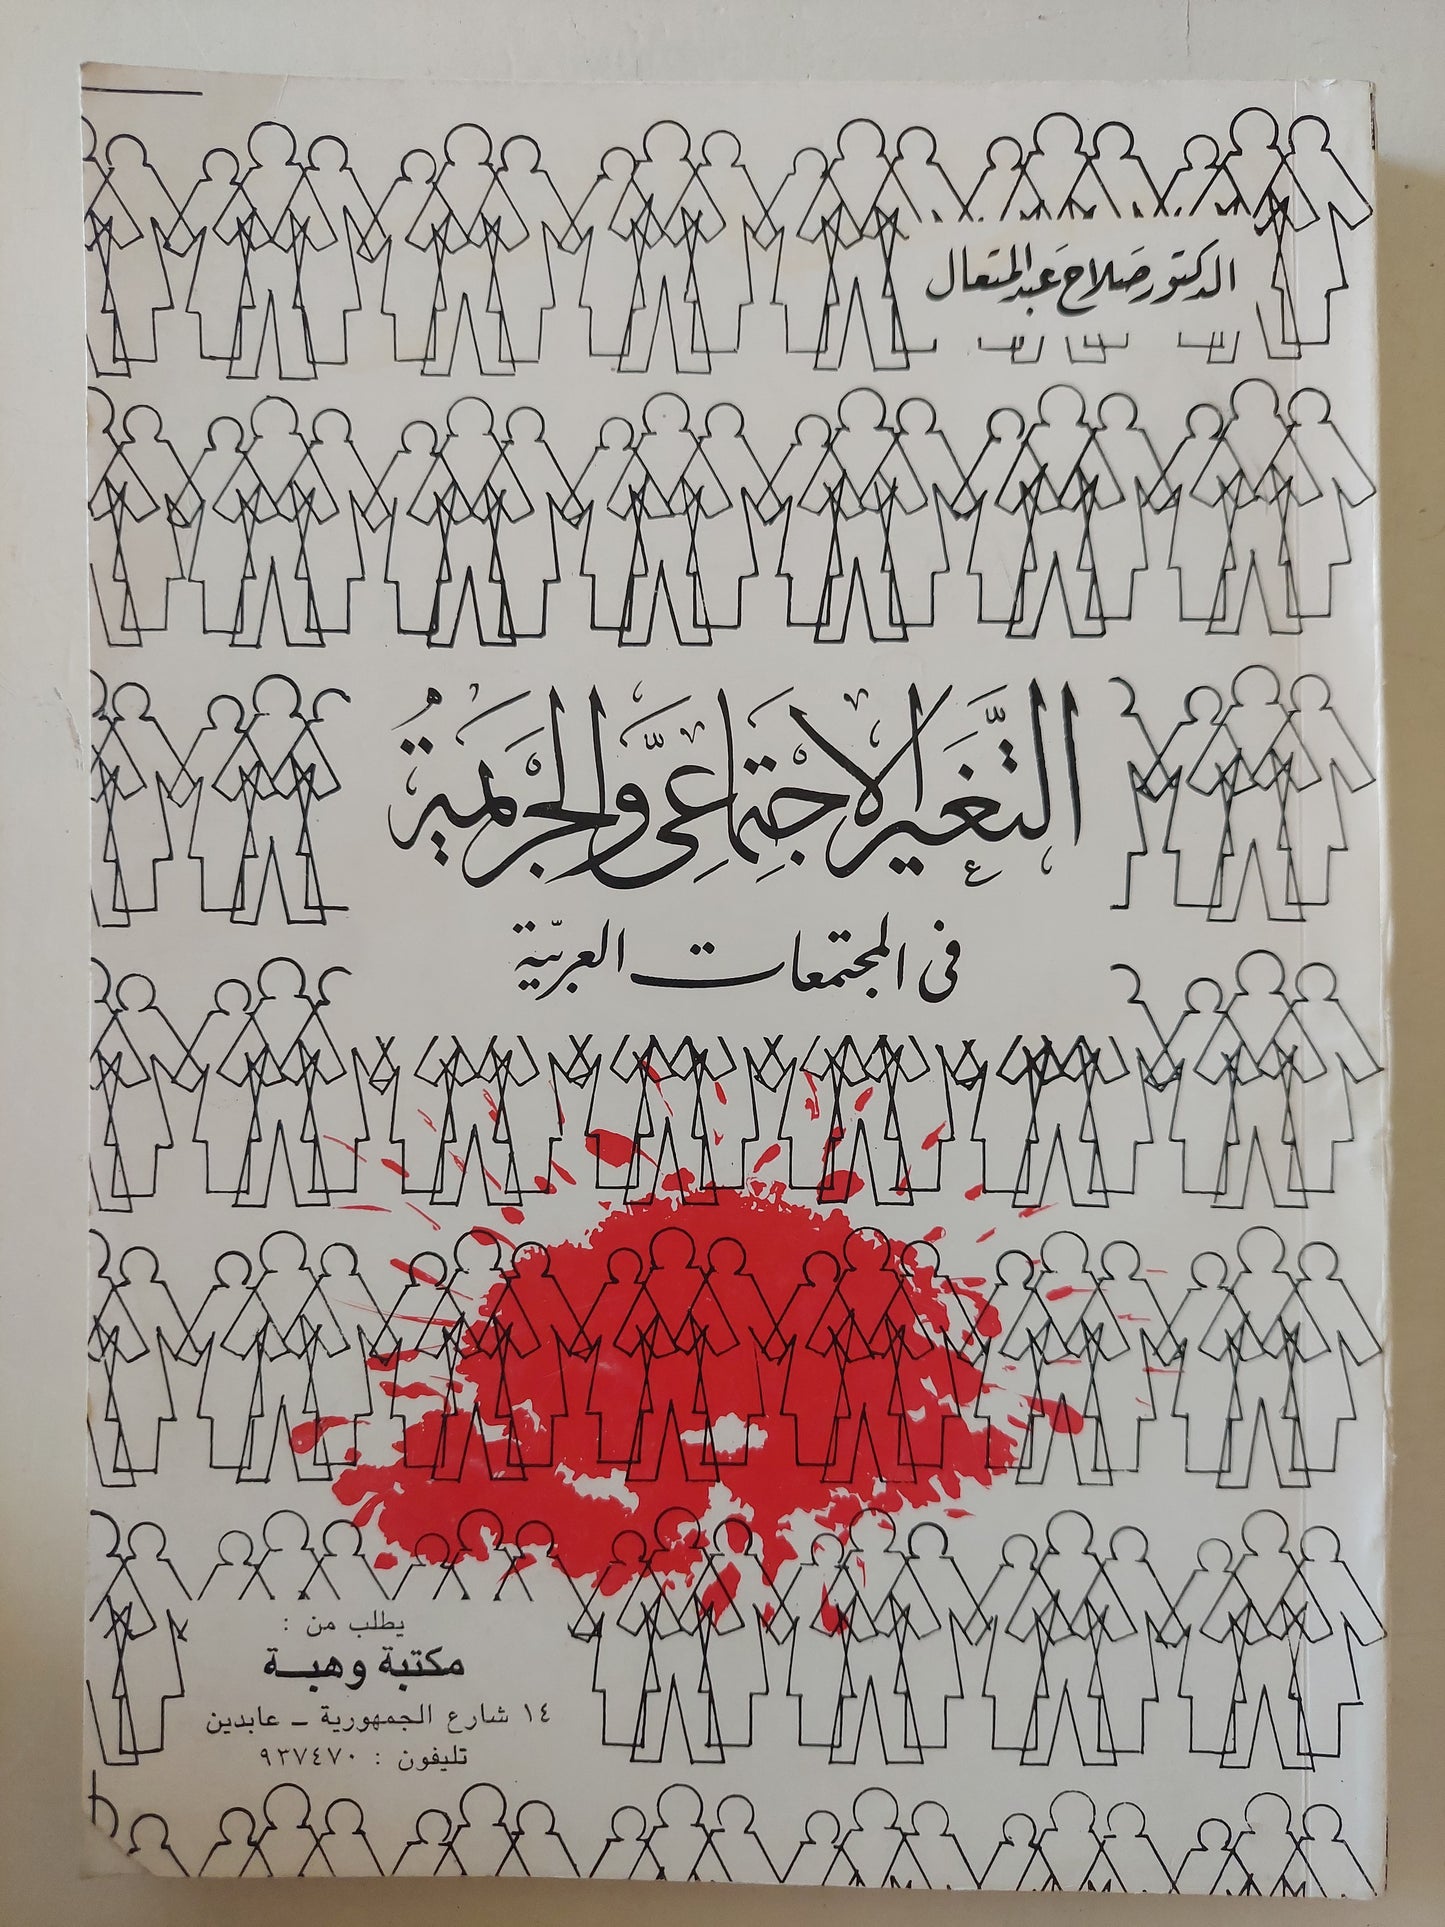 الدكتور صلاح عبد المتعال
التغير الاجتماعى والجريمة
فى المجتمعات العربية
يطلب من :
مكتبة وهبة
١٤ شارع الجمهورية ــ عابدين
تليفون : ٩٣٧٤٧٠